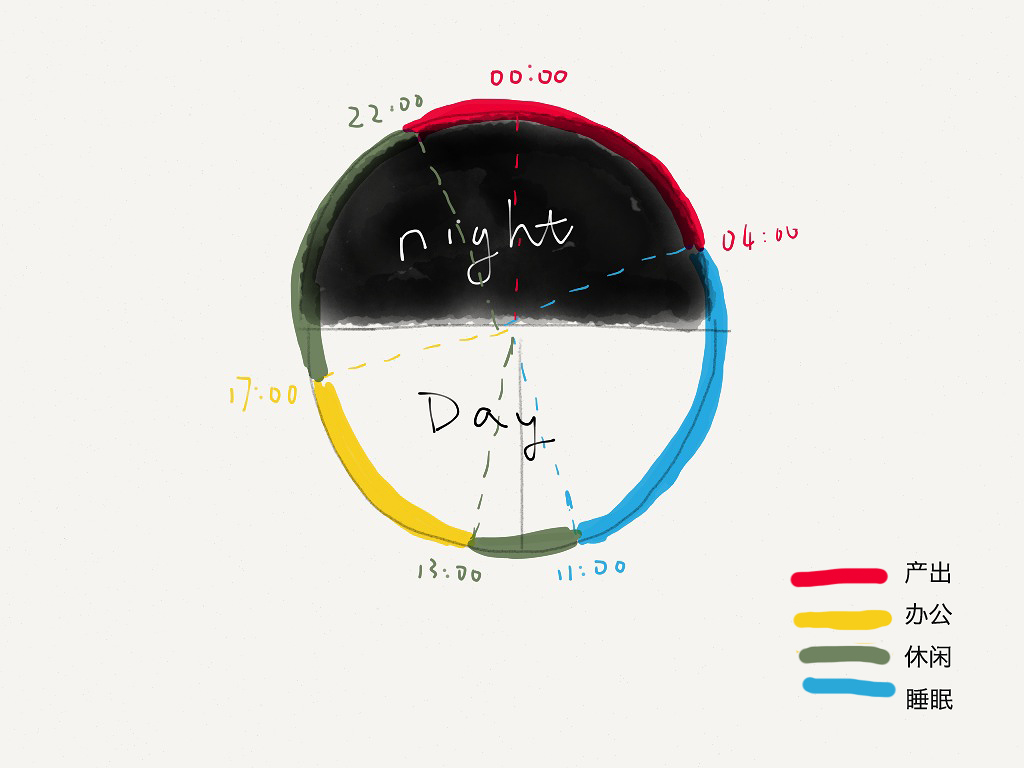 00:00
22:00
night
04:00
17:00
Day
13:00
11:00
产出
办公
休闲
睡眠